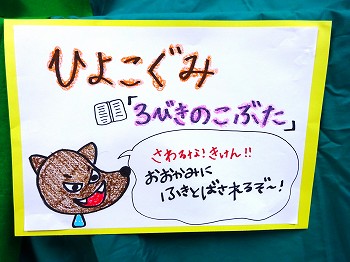 ひよこぐみ
「3びきのこぶた」
さわるな!きけん!!
おおかみに
ふきとばされるぞ〜!